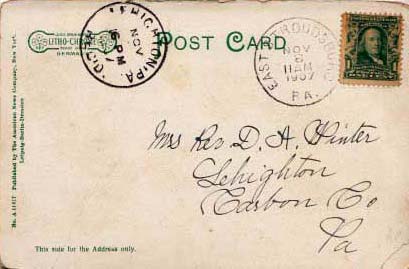 POST CARD
LITHO-CHROME
GERMANY
LEHIGHTON, PA.
NOV
6 PM
REC'D.
EAST STROUDSBURG
NOV
6
11 AM
1907
PA.
Mrs Rev D. A. Winter
Lehighton
Carbon Co
Pa
No. A 11417 Published by The American News Company, New York.
Leipzig-Berlin-Dresden
This side for the Address only.